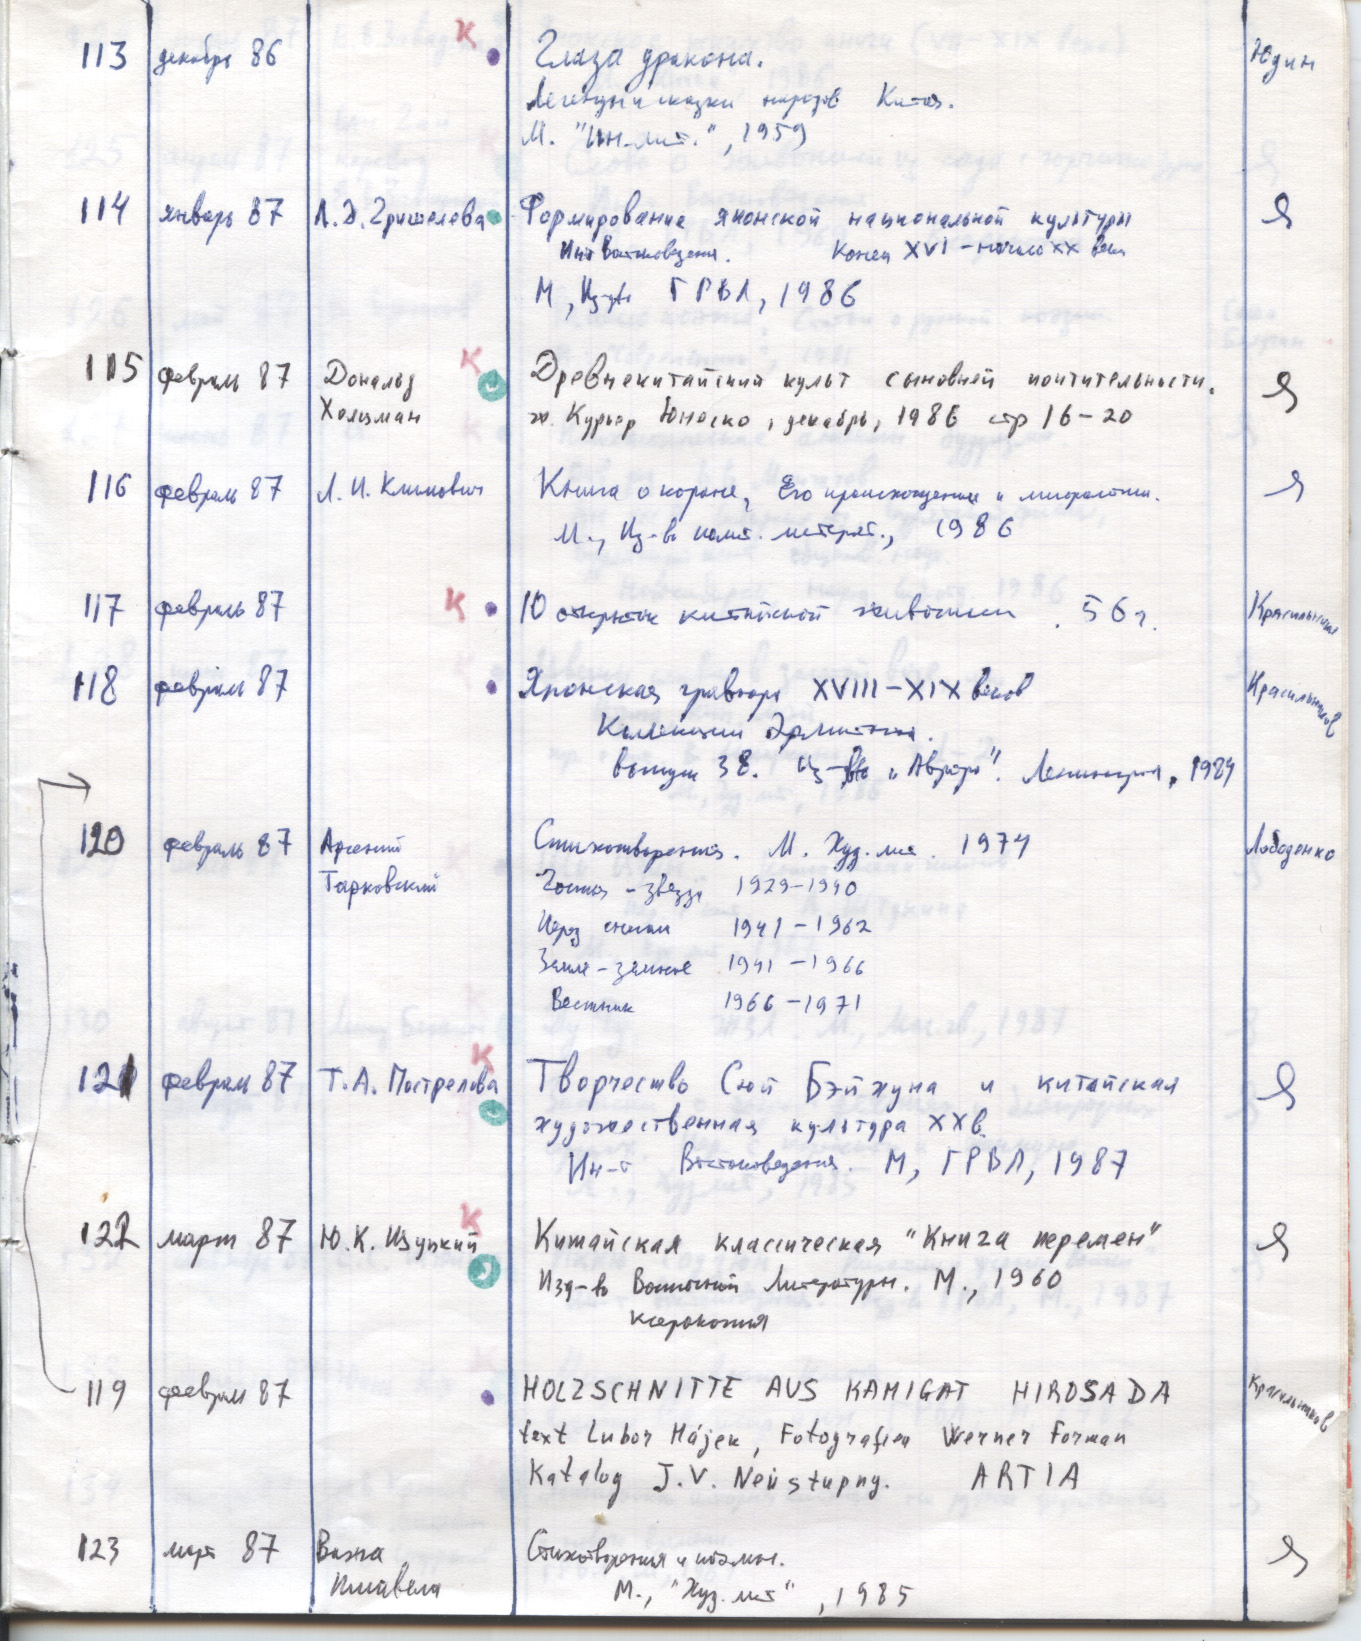 113 декабрь 86 К Глаза дракона. Юдин
Легенды и сказки народов Китая.
М. "Ин. лит.", 1959
114 январь 87 Л. Д. Гришелева Формирование японской национальной культуры Я
Ин-т Востоковедения. Конец XVI - начало XX века
М, Из-во ГРВЛ, 1986
115 февраль 87 Дональд К Древнекитайский культ сыновней почтительности. Я
Холцман ж. Курьер Юнеско, декабрь, 1986 стр 16-20
116 февраль 87 Л. И. Климович Книга о коране, Его происхождение и мифология. Я
М., Из-во полит. литерат., 1986
117 февраль 87 К 10 открыток китайской живописи . 56 г. Красильников
118 февраль 87 Японская гравюра XVIII-XIX веков Красильников
Коллекции Эрмитажа.
выпуск 38. Из-во "Аврора". Ленинград, 1984
120 февраль 87 Арсений Стихотворения. М. Худ. лит. 1974 Лободенко
Тарковский Гостья - звезда 1929-1940
Перед снегом 1941-1962
Земле - земное 1941-1966
Вестник 1966-1971
121 февраль 87 Т. А. Пострелова К Творчество Сюй Бэйхуна и китайская Я
художественная культура XX в.
Ин-т Востоковедения. М, ГРВЛ, 1987
122 март 87 Ю. К. Щуцкий К Китайская классическая "Книга перемен" Я
Изд-во Восточной Литературы. М., 1960
ксерокопия
119 февраль 87 HOLZSCHNITTE AUS KAMIGAT HIROSADA Красильников
text Lubor Hájek, Fotografien Werner Forman
Katalog J.V. Neústupny. ARTIA
123 март 87 Важа Стихотворения и поэмы. Я
Пшавела М., "Худ. лит", 1985